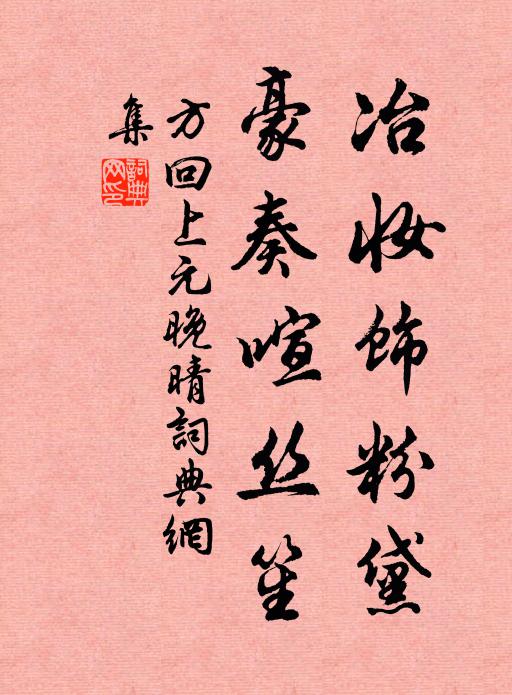 冶妆饰粉黛
豪奏喧丝笙
方回上元晚晴詞典網
集
詞典網印